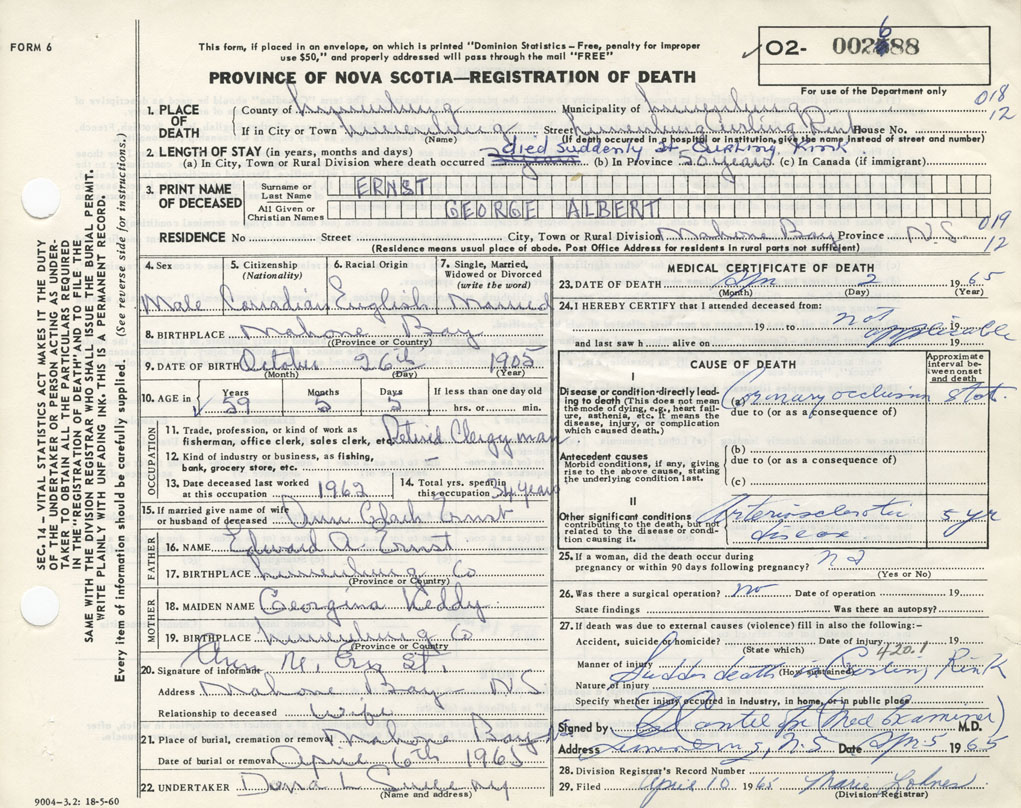 FORM 6
This form, if placed in an envelope, on which is printed "Dominion Statistics – Free, penalty for improper
use $50," and properly addressed will pass through the mail "FREE"
PROVINCE OF NOVA SCOTIA—REGISTRATION OF DEATH
02- 002688
For use of the Department only
018
12
1. PLACE OF DEATH County of Lunenburg Municipality of Lunenburg
If in City or Town Lunenburg Street Lunenburg Curling Rink House No.
(Name) (If death occurred in a hospital or institution, give the name instead of street and number)
2. LENGTH OF STAY (in years, months and days) died suddenly at Curling Rink
(a) In City, Town or Rural Division where death occurred (b) In Province 50 years (c) In Canada (if immigrant)
3. PRINT NAME OF DECEASED Surname or Last Name ERNST
All Given or Christian Names GEORGE ALBERT
019
12
RESIDENCE No Street City, Town or Rural Division Mahone Bay Province N.S
(Residence means usual place of abode. Post Office Address for residents in rural parts not sufficient)
4. Sex 5. Citizenship (Nationality) 6. Racial Origin 7. Single, Married, Widowed or Divorced (write the word)
Male Canadian English Married
8. BIRTHPLACE Mahone Bay
(Province or Country)
9. DATE OF BIRTH October 26th 1905
(Month) (Day) (Year)
10. AGE in Years Months Days If less than one day old
59 5 hrs. or min.
OCCUPATION
11. Trade, profession, or kind of work as fisherman, office clerk, sales clerk, etc. Retired Clergyman
12. Kind of industry or business, as fishing, bank, grocery store, etc. –
13. Date deceased last worked at this occupation 1962 14. Total yrs. spent in this occupation 34 years
15. If married give name of wife or husband of deceased Ann Clark Ernst
FATHER
16. NAME Edward A. Ernst
17. BIRTHPLACE Lunenburg Co
(Province or Country)
MOTHER
18. MAIDEN NAME Georgina Keddy
19. BIRTHPLACE Lunenburg Co
(Province or Country)
20. Signature of informant
Address Mahone Bay N.S.
Relationship to deceased Wife
21. Place of burial, cremation or removal Mahone Bay NS
Date of burial or removal April 6th 1965
22. UNDERTAKER
(Name and address)
MEDICAL CERTIFICATE OF DEATH
23. DATE OF DEATH Apr 2 1965
(Month) (Day) (Year)
24. I HEREBY CERTIFY that I attended deceased from:
19 to 19
and last saw h alive on 19
not applicable
CAUSE OF DEATH
Approximate interval between onset and death
I
Disease or condition directly leading to death (This does not mean the mode of dying, e.g., heart failure, asthenia, etc. It means the disease, injury, or complication which caused death.)
(a) Coronary occlusion stat.
due to (or as a consequence of)
Antecedent causes
Morbid conditions, if any, giving rise to the above cause, stating the underlying condition last.
(b)
due to (or as a consequence of)
(c)
II
Other significant conditions contributing to the death, but not related to the disease or condition causing it.
Arteriosclerotic disease 5 yr
25. If a woman, did the death occur during pregnancy or within 90 days following pregnancy?
(Yes or No)
26. Was there a surgical operation? no Date of operation 19
State findings Was there an autopsy?
27. If death was due to external causes (violence) fill in also the following:–
Accident, suicide or homicide? Date of injury 19
(State which)
420.1
Manner of injury Sudden death in Curling Rink
(How sustained)
Nature of injury
Specify whether injury occurred in industry, in home, or in public place
Signed by (Med examiner) M.D.
Address Date Apr 5 1965
28. Division Registrar's Record Number
29. Filed April 10 1965 Marie
(Division Registrar)
SEC. 14 – VITAL STATISTICS ACT MAKES IT THE DUTY
OF THE UNDERTAKER OR PERSON ACTING AS UNDER-
TAKER TO OBTAIN ALL THE PARTICULARS REQUIRED
IN THE "REGISTRATION OF DEATH" AND TO FILE THE
SAME WITH THE DIVISION REGISTRAR WHO SHALL ISSUE THE BURIAL PERMIT.
WRITE PLAINLY WITH UNFADING INK. THIS IS A PERMANENT RECORD.
Every item of information should be carefully supplied. (See reverse side for instructions.)
9004–3.2: 18-5-60